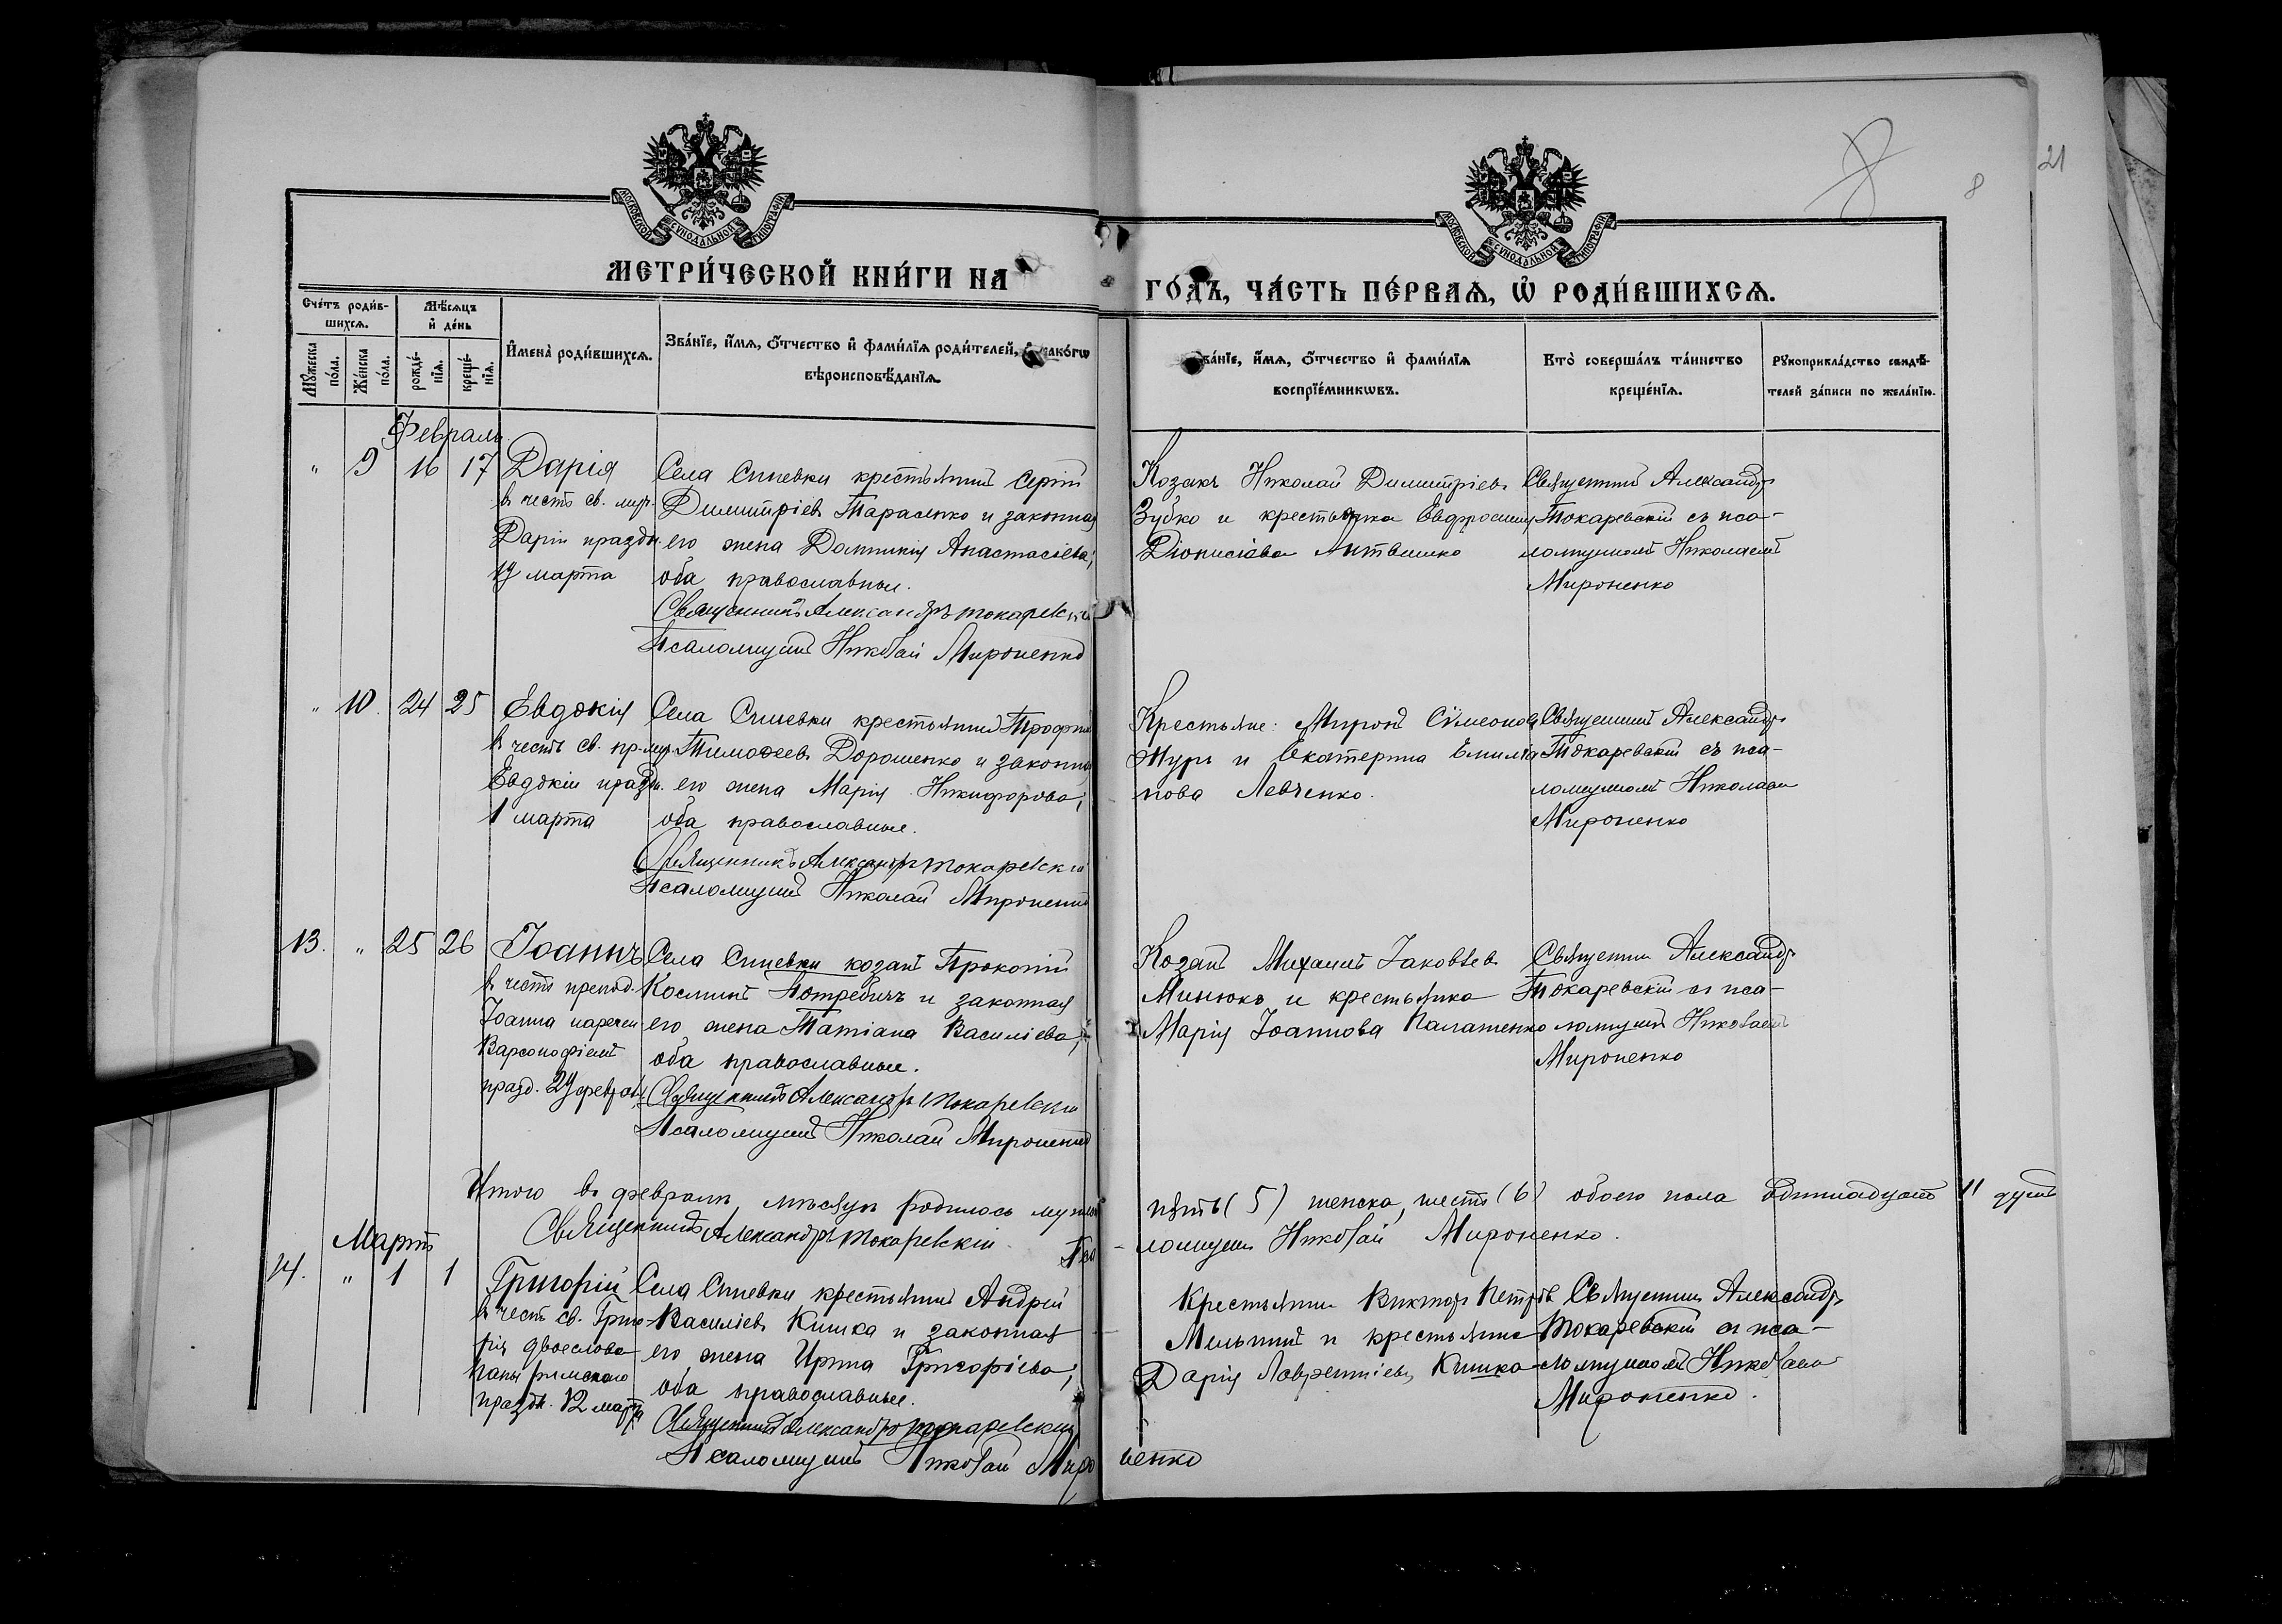 21
8
МОСКОВСКОЙ СѴНОДАЛЬНОЙ ТИПОГРАФІИ
МОСКОВСКОЙ СѴНОДАЛЬНОЙ ТИПОГРАФІИ
МЕТРИ́ЧЕСКОЙ КНИ́ГИ НА
ГО́ДЪ, ЧА́СТЬ ПЕ́РВАЯ, Ѡ РОДИ́ВШИХСЯ.
Сче́тъ роди́в-
шихся.
Мѣ́сяцъ
и де́нь
Му́жеска по́ла.
Же́нска по́ла.
рожде́-
нія.
креще́-
нія.
Имена̀ роди́вшихся.
Зва́ніе, и́мя, о́тчество и фами́лія роди́телей, и како́гѡ
вѣроисповѣ́данія.
ва́ніе, и́мя, о́тчество и фами́лія
воспріе́мникѡвъ.
Кто̀ соверша́лъ та́инство
креще́нія.
Рукоприкла́дство свидѣ́-
телей за́писи по жела́нію.
Февраль
" 9 16 17 Дарія
в честь св. муч.
Даріи праздн.
19 марта
Села Синевки крестьянинъ Сергій
Димитріев Тарасенко и законная
его жена Домникія Анастасіева;
оба православные.
Священникъ Александръ Токаревскій
Псаломщикъ Николай Мироненко
Козакъ Николай Димитріевъ
Зубко и крестьянка Евфросинія
Діонисіева Литвинко
Священникъ Александръ
Токаревскій съ пса-
ломщикомъ Николаемъ
Мироненко
" 10. 24 25 Евдокія
в честь св. пр.-муч.
Евдокіи праздн.
1 марта
Села Синевки крестьянинъ Трофимъ
Тимофеев Дорошенко и законная
его жена Марія Никифорова;
оба православные.
Священникъ Александръ Токаревскій
Псаломщикъ Николай Мироненко
Крестьяне: Миронъ Сѵмеоновъ
Журъ и Екатерина Емилiа-
нова Левченко.
Священникъ Александръ
Токаревскій съ пса-
ломщикомъ Николаем
Мироненко
13. " 25 26 Іоаннъ
в честь препод.
Іоанна наречен
Варсонофіемъ
празд. 29 февраля
Села Синевки козакъ Прокопій
Косминъ Потребичъ и законная
его жена Татіана Василіева;
оба православные.
Священникъ Александръ Токаревскій
Псаломщикъ Николай Мироненко
Козакъ Михаилъ Іаковлев
Минюкъ и крестьянка
Марія Іоаннова Палатенко
Священник Александръ
Токаревскій съ пса-
ломщикомъ Николаемъ
Мироненко
Итого въ февралѣ мѣсяцѣ родилось мужска
пять (5) женска, шесть (6) обоего пола одиннадцать 11 душъ
Священникъ Александръ Токаревскій. Пса-
ломщикъ Николай Мироненко.
Мартъ
14. " 1 1 Григорій
в честь св. Григо-
рія двоеслова
папы римскаго
праздн. 12 марта
Села Синевки крестьянинъ Андрей
Василіев Кишка и законная
его жена Ирина Григоріева;
оба православные.
Священникъ Александръ Токаревскій
Псаломщикъ Николай Миро
ненко
Крестьянин Викторъ Петровъ
Мельникъ и крестьянка
Дарія Лаврентіева Кишка
Священник Александръ
Токаревскій съ пса-
ломщикомъ Николаемъ
Мироненко.